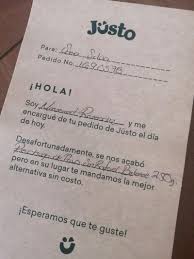 Jüsto
Para:
Pedido No.
¡HOLA!
Soy y me
encargué de tu pedido de Jüsto el día
de hoy.
Desafortunadamente, se nos acabó
250g.
pero en su lugar te mandamos la mejor
alternativa sin costo.
¡Esperamos que te guste!